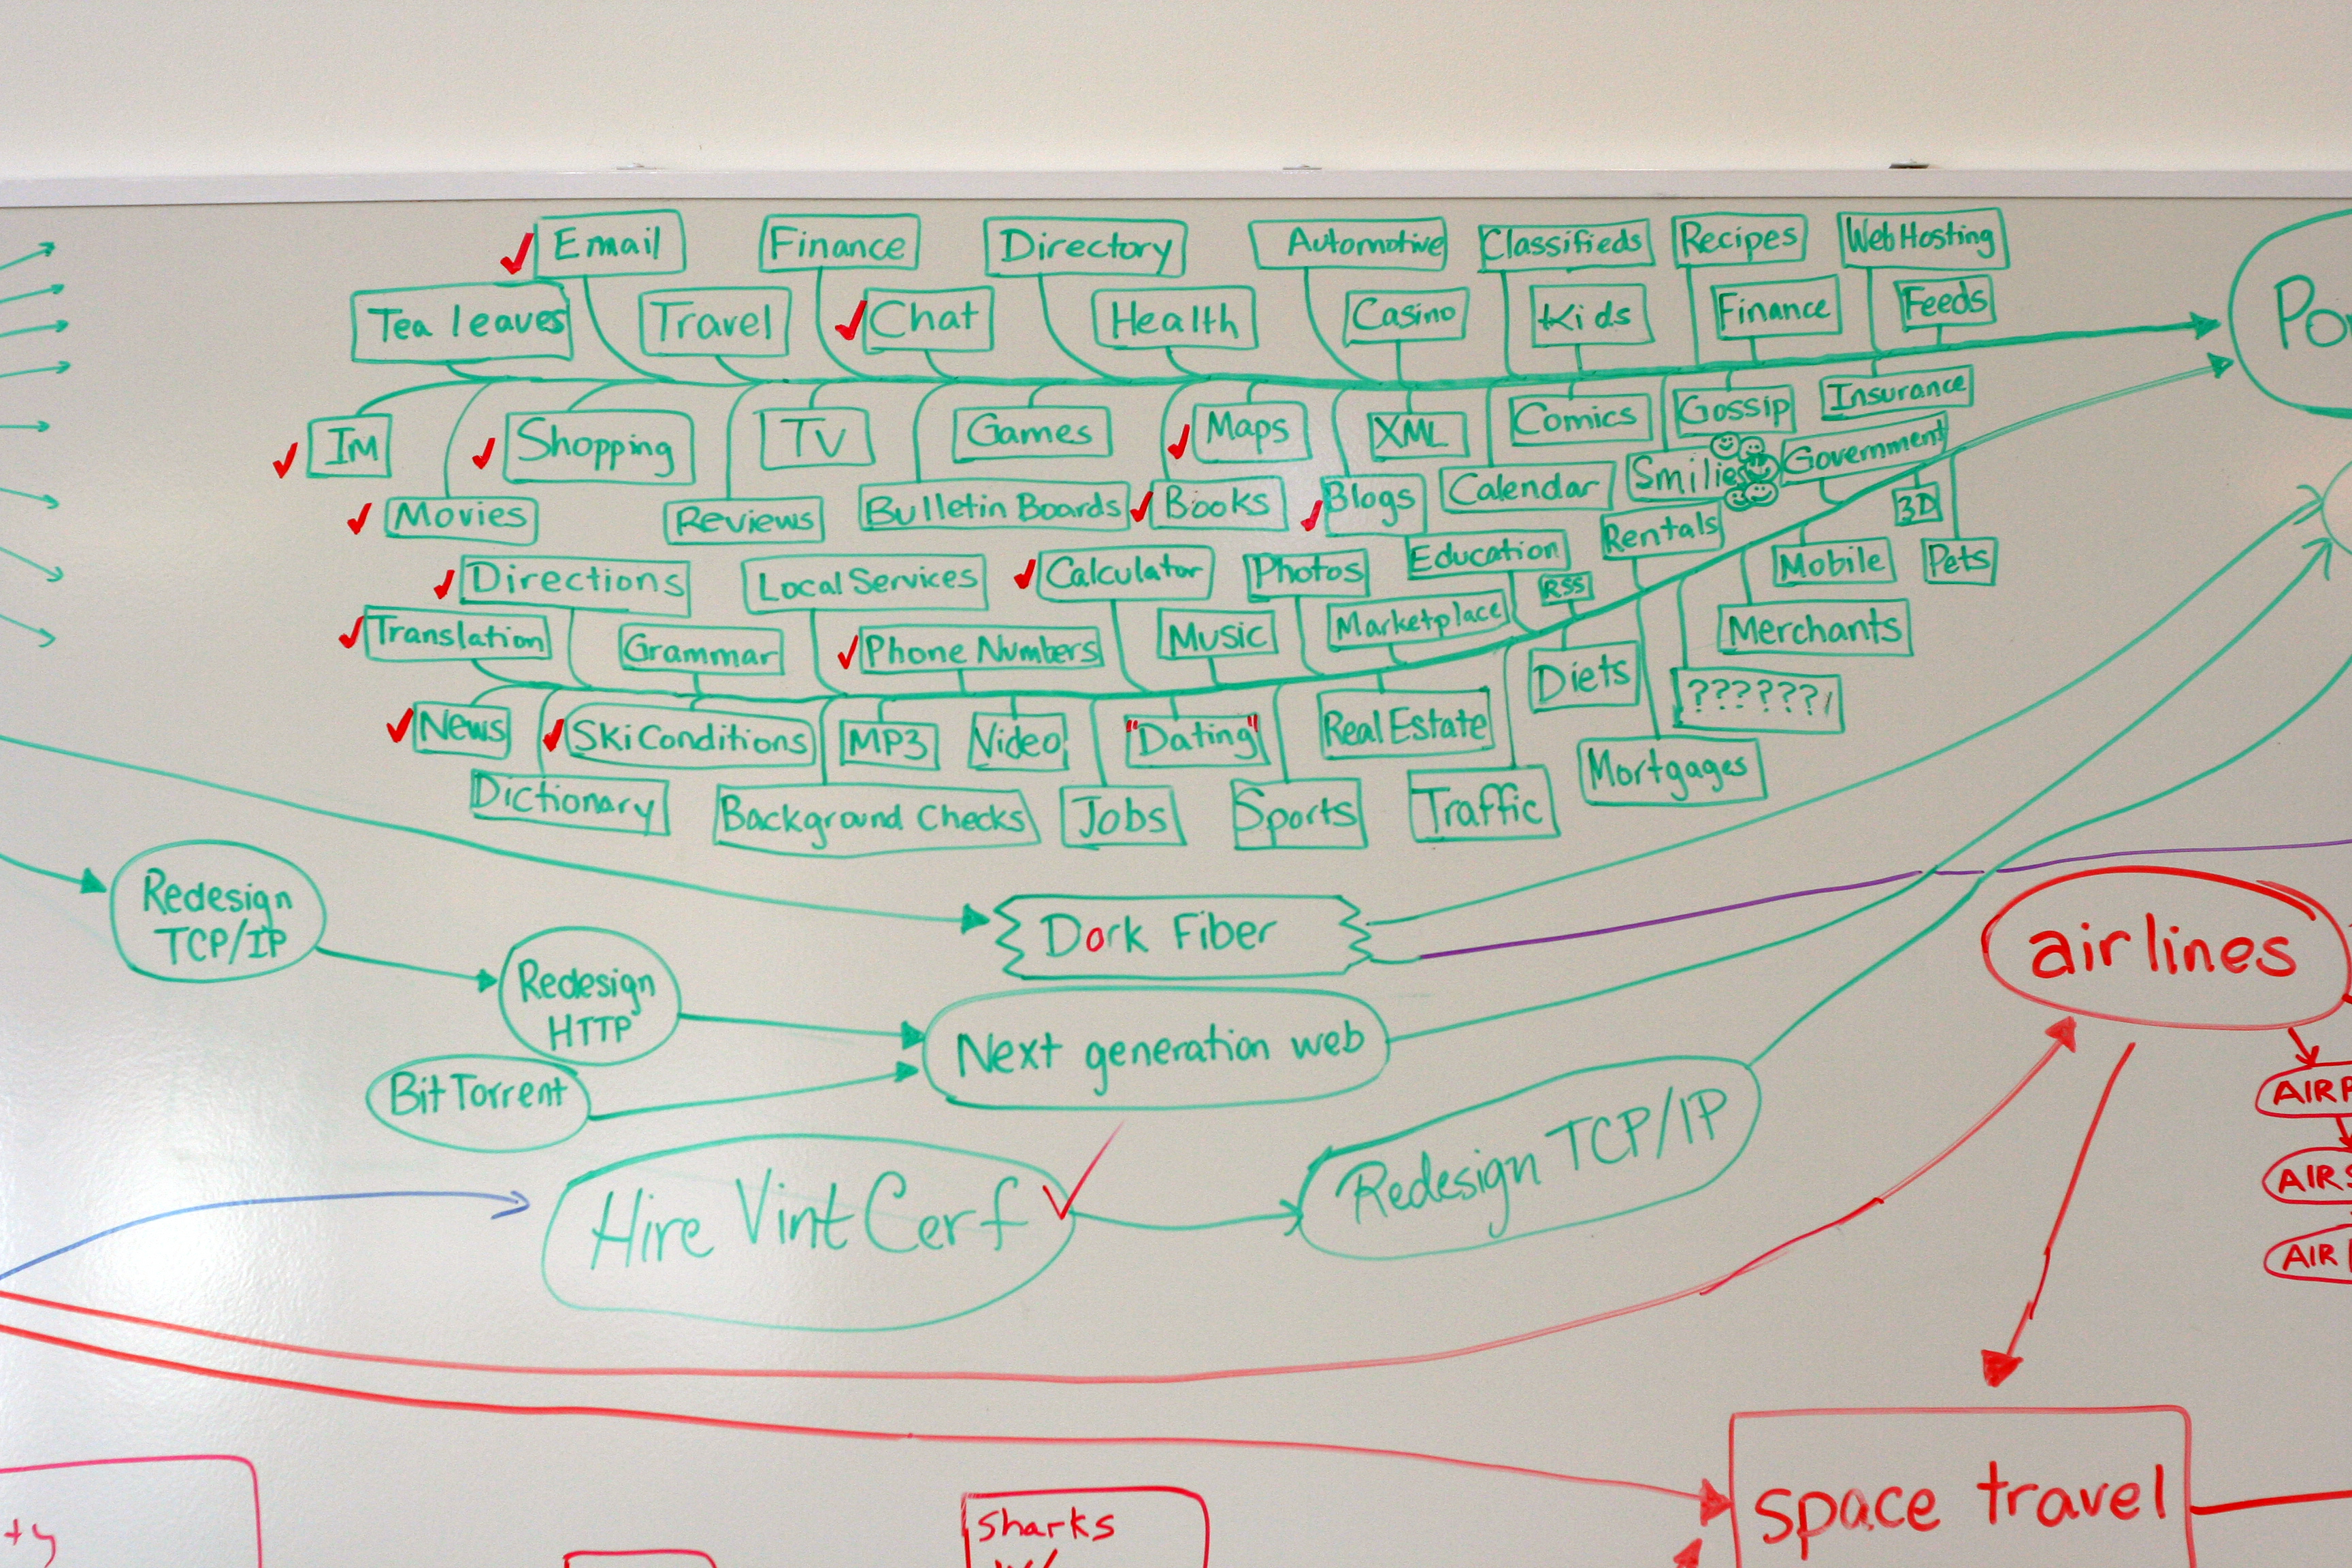 Email
Finance
Directory
Automotive
Classifieds
Recipes
Web Hosting
Tea leaves
Travel
Chat
Health
Casino
Kids
Finance
Feeds
Po
IM
Shopping
TV
Games
Maps
XML
Comics
Gossip
Insurance
Movies
Reviews
Bulletin Boards
Books
Blogs
Calendar
Smilies
Government
3D
Directions
Local Services
Calculator
Photos
Education
Rentals
Mobile
Pets
Translation
Grammar
Phone Numbers
Music
Marketplace
RSS
Merchants
News
Ski Conditions
MP3
Video
"Dating"
Real Estate
Diets
??????
Dictionary
Background Checks
Jobs
Sports
Traffic
Mortgages
Redesign
TCP/IP
Dork Fiber
airlines
Redesign
HTTP
Next generation web
BitTorrent
AIRP
Hire Vint Cerf
Redesign TCP/IP
AIRS
AIR
space travel
ty
Sharks
W/